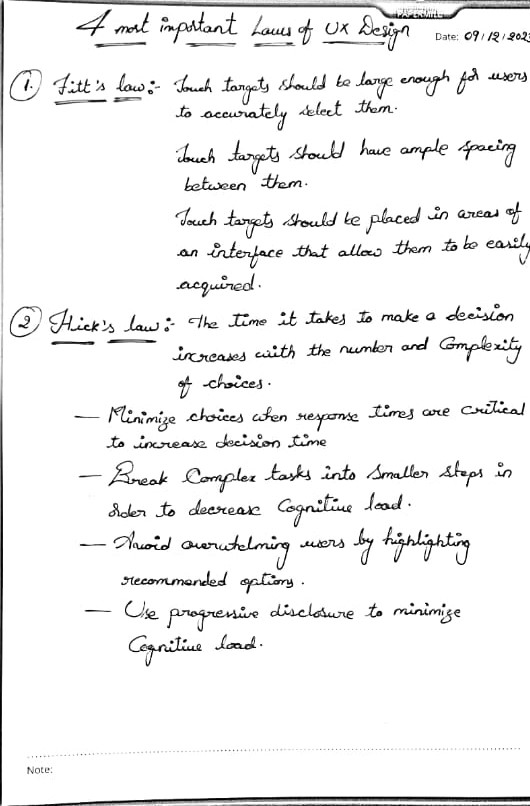 PAPERMILL
4 most important Laws of UX Design
Date: 09/12/202
1. Fitt's law :- Touch targets should be large enough for users
to accurately select them.
Touch targets should have ample spacing
between them.
Touch targets should be placed in areas of
an interface that allow them to be easily
acquired.
2 Hick's law :- The time it takes to make a decision
increases with the number and Complexity
of choices.
— Minimize choices when response times are critical
to increase decision time
— Break Complex tasks into smaller steps in
order to decrease Cognitive load.
— Avoid overwhelming users by highlighting
recommended options.
— Use progressive disclosure to minimize
Cognitive load.
Note: